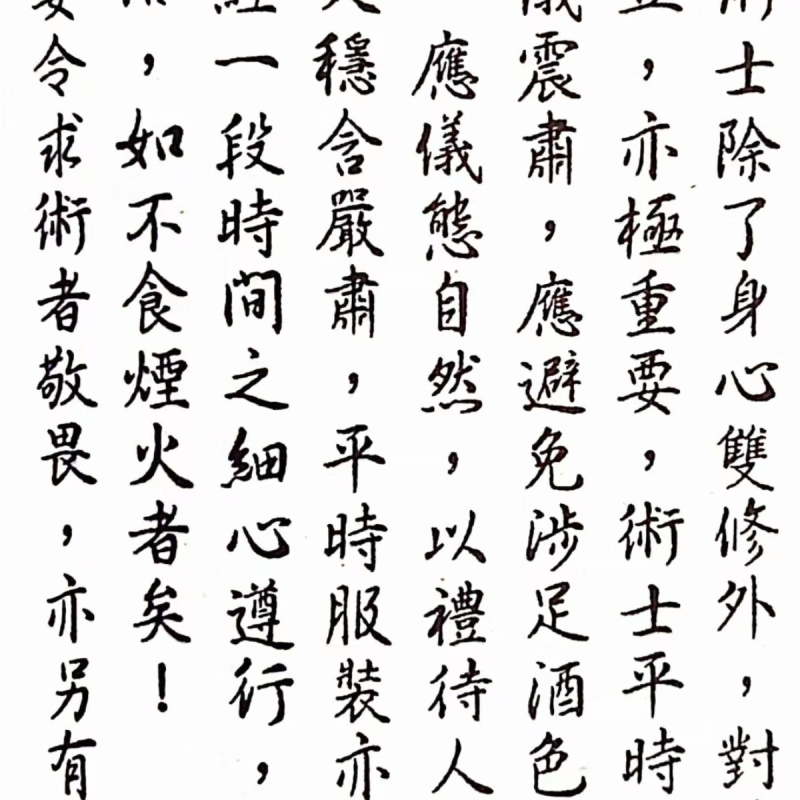 士除了身心雙修外，對
，亦極重要，術士平時
震肅，應避免涉足酒色
應儀態自然，以禮待人
穩含嚴肅，平時服裝亦
一段時間之細心遵行，
，如不食煙火者矣！
令求術者敬畏，亦另有